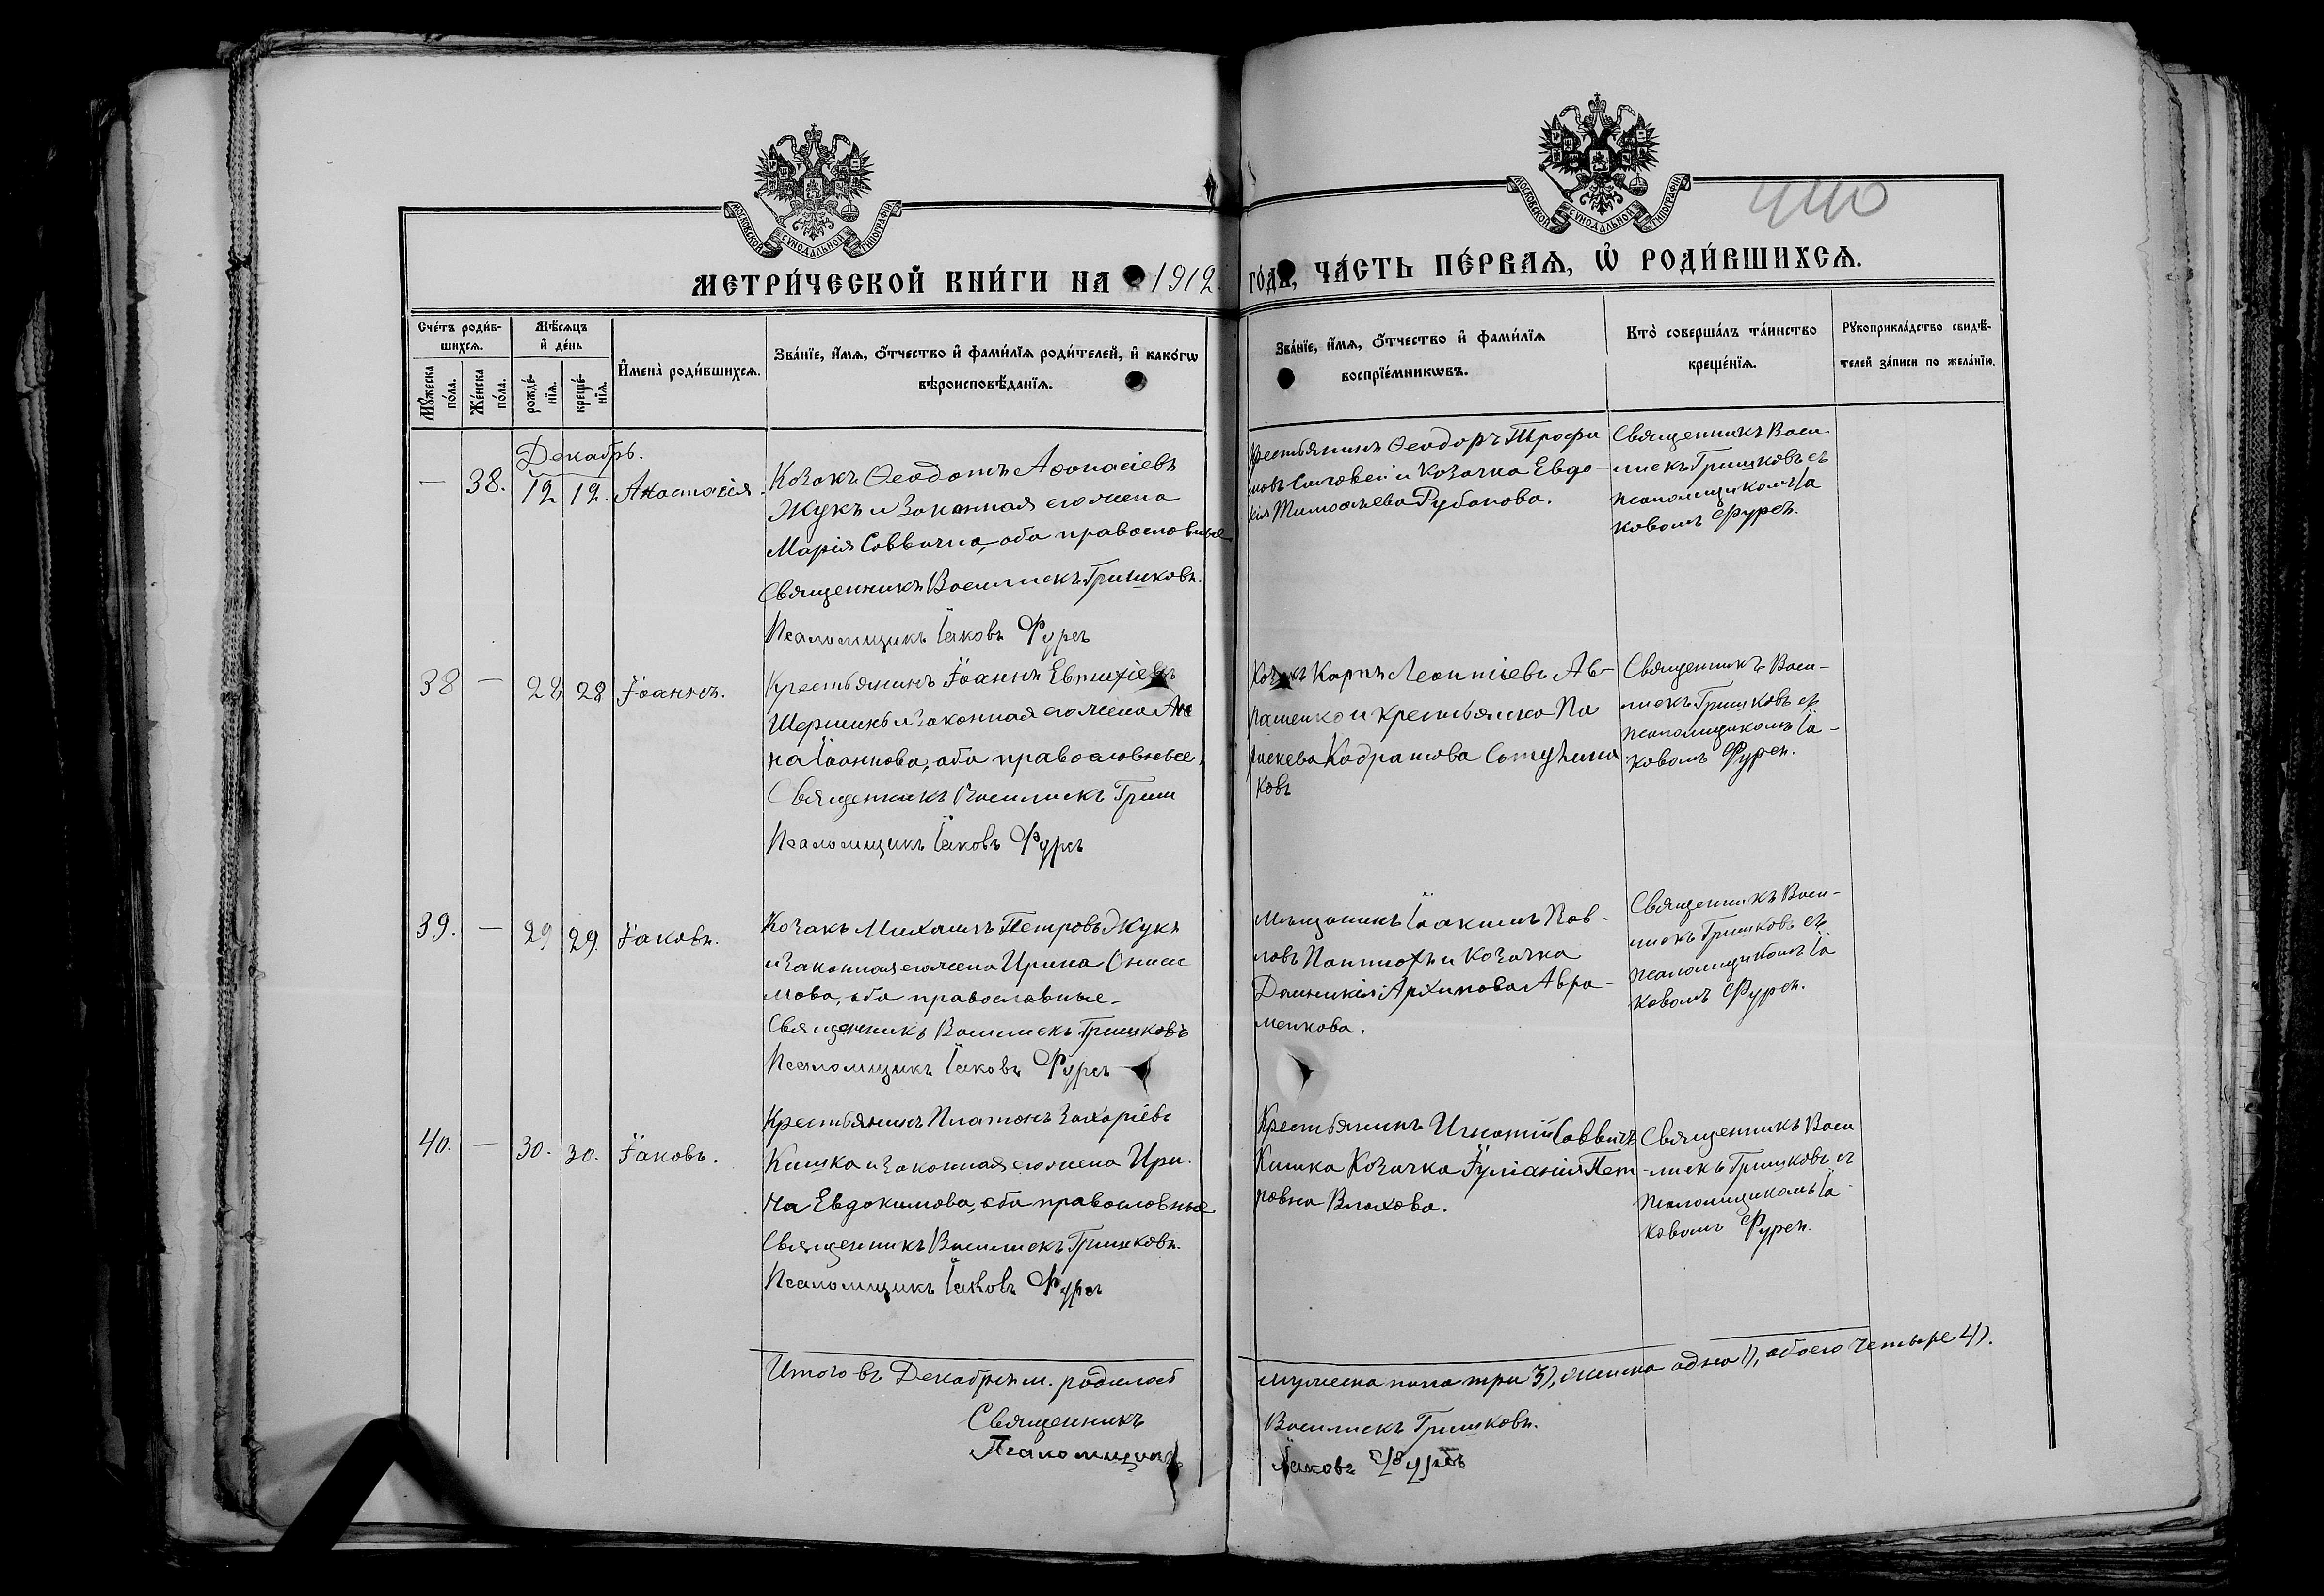 МОСКОВСКОЙ СѴНОДАЛЬНОЙ ТИПОГРАФІИ
МОСКОВСКОЙ СѴНОДАЛЬНОЙ ТИПОГРАФІИ
МЕТРИ́ЧЕСКОЙ КНИ́ГИ НА 1912 ГО́ДЪ, ЧА́СТЬ ПЕ́РВАѦ, Ѡ РОДИ́ВШИХСѦ.
Сче́тъ роди́в-
шихсѧ.
Мꙋ́жеска по́ла.
Же́нска по́ла.
Мѣ́сѧцъ и҆ де́нь
рожде́-нїѧ.
креще́-нїѧ.
И҆мена̀ роди́вшихсѧ.
Зва́нїе, и҆́мѧ, ѻ҆́тчество и҆ фами́лїѧ роди́телей, и҆ како́гѡ
вѣроисповѣ́данїѧ.
Зва́нїе, и҆́мѧ, ѻ҆́тчество и҆ фами́лїѧ
воспрїе́мникѡвъ.
Кто̀ соверша́лъ та́инство
креще́нїѧ.
Рꙋкоприкла́дство свидѣ́-
телей за́писи по жела́нїю.
Декабрь.
— 38. 12 12. Анастасія.
Козакъ Ѳеодотъ Аѳонасіевъ
Жукъ и законная его жена
Марія Саввична, оба православные
Священникъ Василискъ Гришковъ.
Псаломщикъ Іаковъ Фурсъ
Крестьянинъ Ѳеодоръ Трофи
мовъ Соловей и Козачка Евдо-
кія Тимоѳеева Рубанова.
Священникъ Васи-
лискъ Гришковъ съ
псаломщикомъ Іа
ковомъ Фурсъ.
38 — 28 28 Іоаннъ.
Крестьянинъ Іоаннъ Евтихіевъ
и законная его жена Ан
на Іоаннова, оба православные.
Священникъ Василискъ Гриш
Псаломщикъ Іаковъ Фурсъ
Козакъ Карпъ Леонтіевъ Ав-
раменко и крестьянка Па
раскева
ковъ
Священникъ Васи-
лискъ Гришковъ съ
псаломщикомъ Іа-
ковомъ Фурсъ.
39. — 29 29. Іаковъ.
Козакъ Михаилъ Петровъ Жукъ
и законная его жена Ирина Ониси
мова, оба православные.
Священникъ Василискъ Гришковъ
Псаломщикъ Іаковъ Фурсъ
Мѣщанинъ Іакимъ Пав-
ловъ и Козачка
Домникія Архипова Авра-
менкова.
Священникъ Васи-
лискъ Гришковъ съ
псаломщикомъ Іа
ковомъ Фурсъ.
40. — 30. 30. Іаковъ.
Крестьянинъ Платонъ Захаріевъ
Кишка и законная его жена Ири-
на Евдокимова, оба православные
Священникъ Василискъ Гришковъ.
Псаломщикъ Іаковъ Фурсъ
Крестьянинъ Игнатій Саввичъ
Кишка Козачка Іуліанія Пет
ровна Влахова.
Священникъ Васи
-лискъ Гришковъ съ
псаломщикомъ Іа-
ковомъ Фурсъ.
Итого въ Декабрѣ м. родилось мужеска пола три 3), женска одна 1), обоего четыре 4).
Священникъ Василискъ Гришковъ.
Псаломщикъ Іаковъ Фурсъ